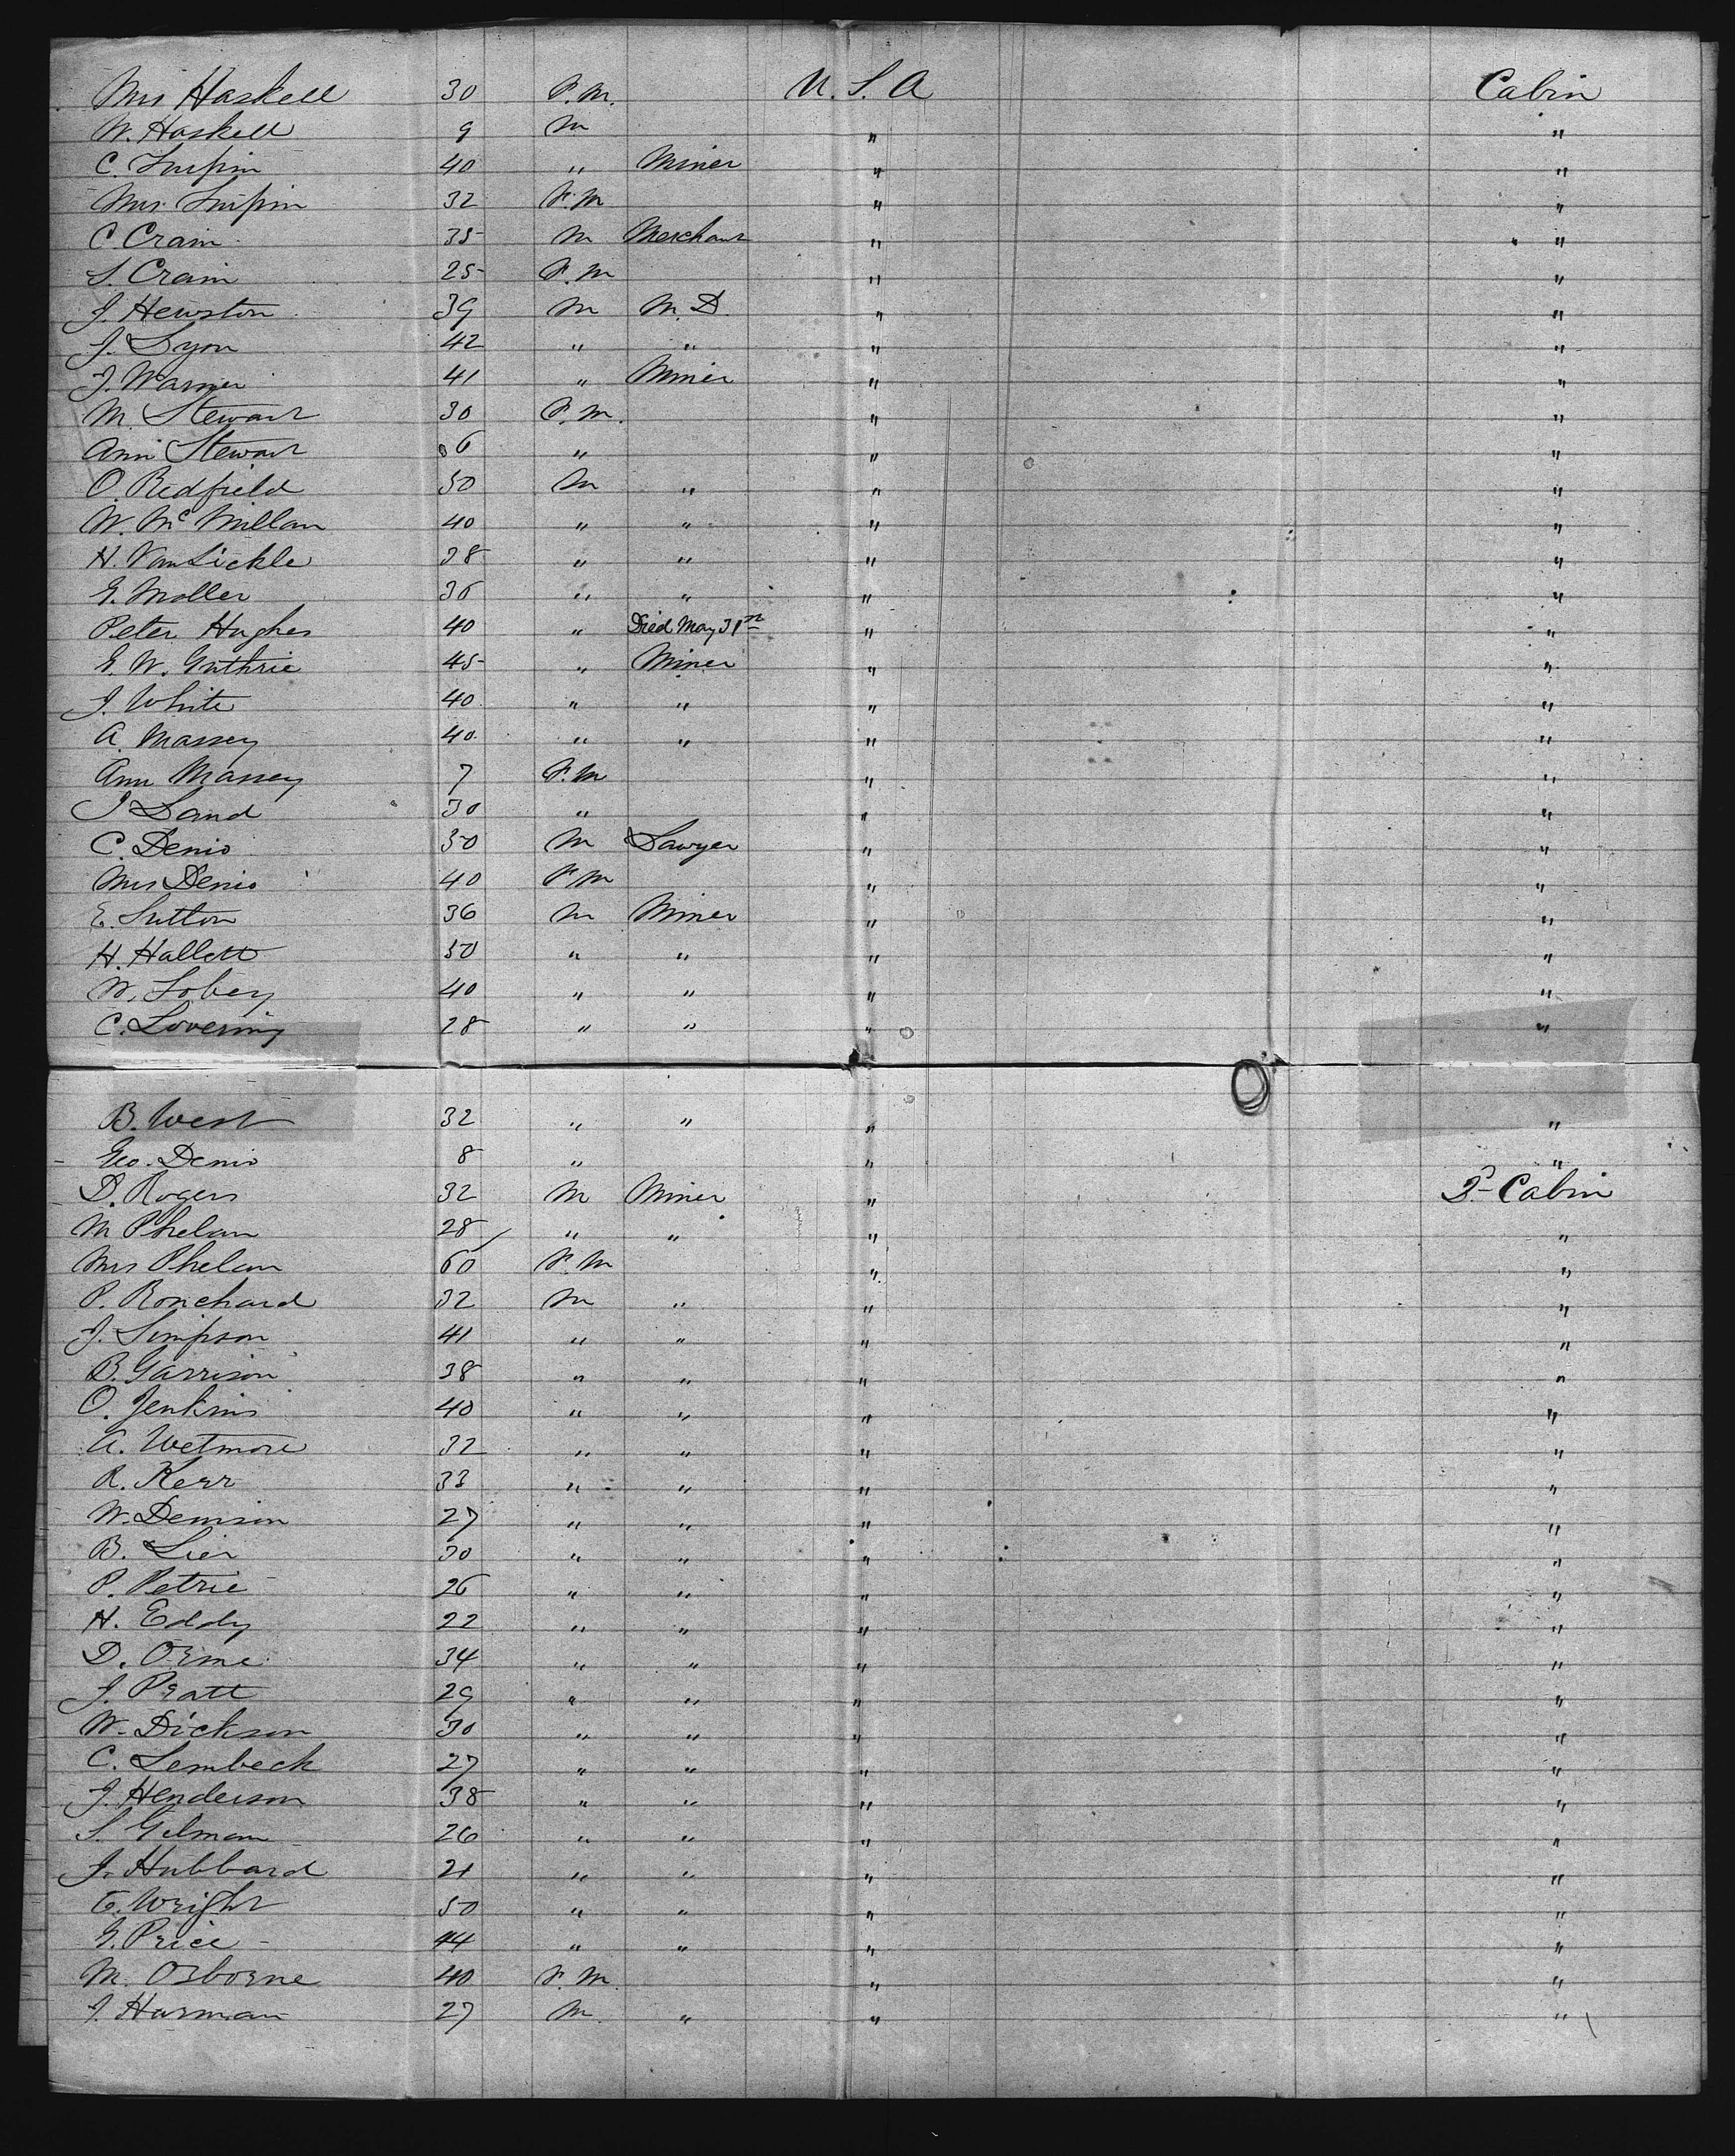 Mrs Haskell 30 F.M. U.S.A Cabin
W. Haskell 9 M " "
C. 40 " Miner " "
Mrs. 32 F.M " "
C. Crain 35 M Merchant " "
S. Crain 25 F.M " "
J. Hewston 39 M M.D. " "
J. Lyon 42 " " " "
J. Warner 41 " Miner " "
M. Stewart 30 F.M. " "
Ann Stewart 6 " " "
O. Redfield 50 M " " "
W. McMillan 40 " " " "
H. VanSickle 38 " " " "
G. Moller 36 " " " "
Peter Hughes 40 " Died May 31st " "
G. W. Guthrie 45 " Miner " "
J. White 40 " " " "
A. Massey 40 " " " "
Ann Massey 7 F.M " "
J Land 30 " " "
C. Denio 50 M Lawyer " "
Mrs Denio 40 F M " "
E. Sutton 36 M Miner " "
H. Hallett 50 " " " "
W. Tobey 40 " " " "
C. Lovering 28 " " " "
B. West 32 " " " "
Geo. Denio 8 " " "
D. Rogers 32 M Miner " 2d Cabin
M Phelan 28 " " " "
Mrs Phelan 60 F.M " "
P. Ronchard 32 M " " "
J. Simpson 41 " " " "
B. Garrison 38 " " " "
O. Jenkins 40 " " " "
A. Wetmore 32 " " " "
R. Kerr 33 " " " "
W. Denison 27 " " " "
B. Lier 30 " " " "
P. Petrie 26 " " " "
H. Eddy 22 " " " "
D. Orme 34 " " " "
J. Pratt 29 " " " "
W. Dickson 30 " " " "
C. Lembeck 27 " " " "
J. Henderson 38 " " " "
S. Gilman 26 " " " "
J. Hubbard 21 " " " "
E. Wright 50 " " " "
G. Price 44 " " " "
M. Osborne 40 F.M. " "
J. Harman 27 M. " " "